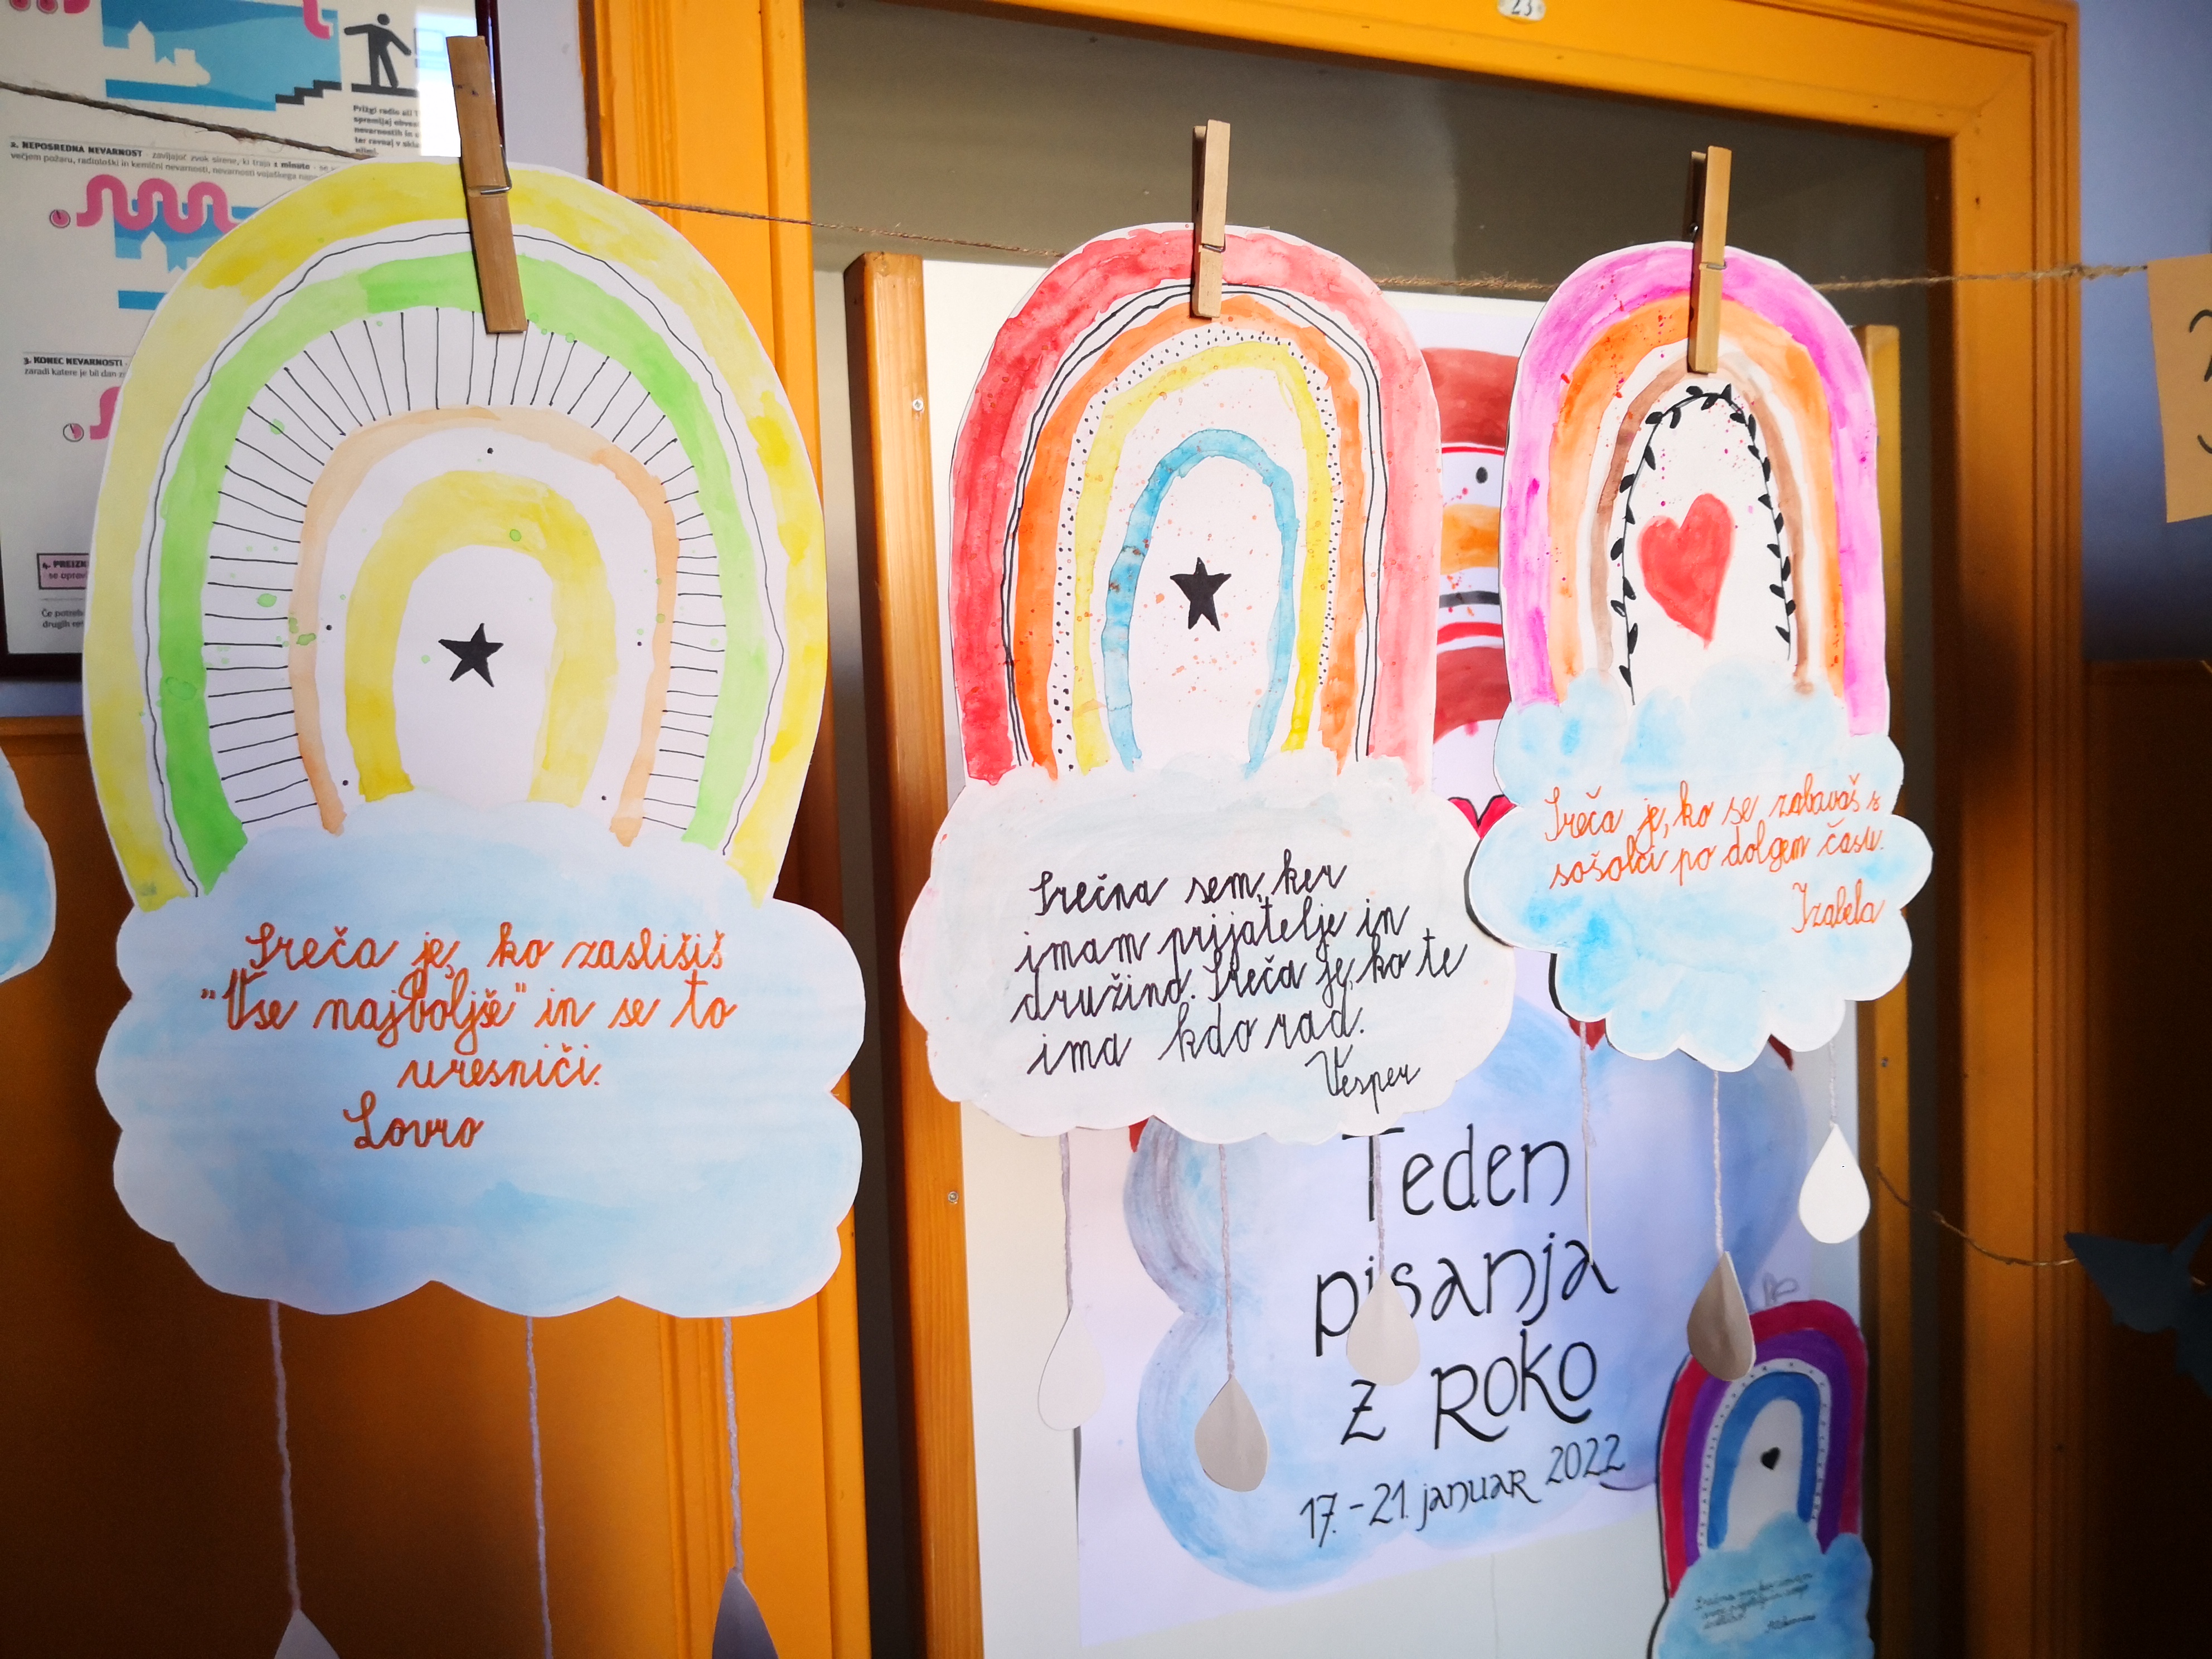 23
Prižgi radio ali
spremljaj obves
nevarnostih in
ter ravnaj v skla
2. NEPOSREDNA NEVARNOST - zavijajoč zvok sirene, ki traja 1 minuto - se
večjem požaru, radiološki in kemični nevarnosti, nevarnosti vojaškega nap
3. KONEC NEVARNOSTI
zaradi katere je bil dan z
4. PREIZK
se oprav
Če potreb
drugih
Sreča je, ko zaslišiš
"Vse najboljše" in se to
uresniči.
Lovro
Srečna sem, ker
imam prijatelje in
družino. Sreča je, ko te
ima kdo rad.
Vesper
Sreča je, ko se zabavaš s
sošolci po dolgem času.
Izabela
Teden
pisanja
z roko
17.-21. januar 2022